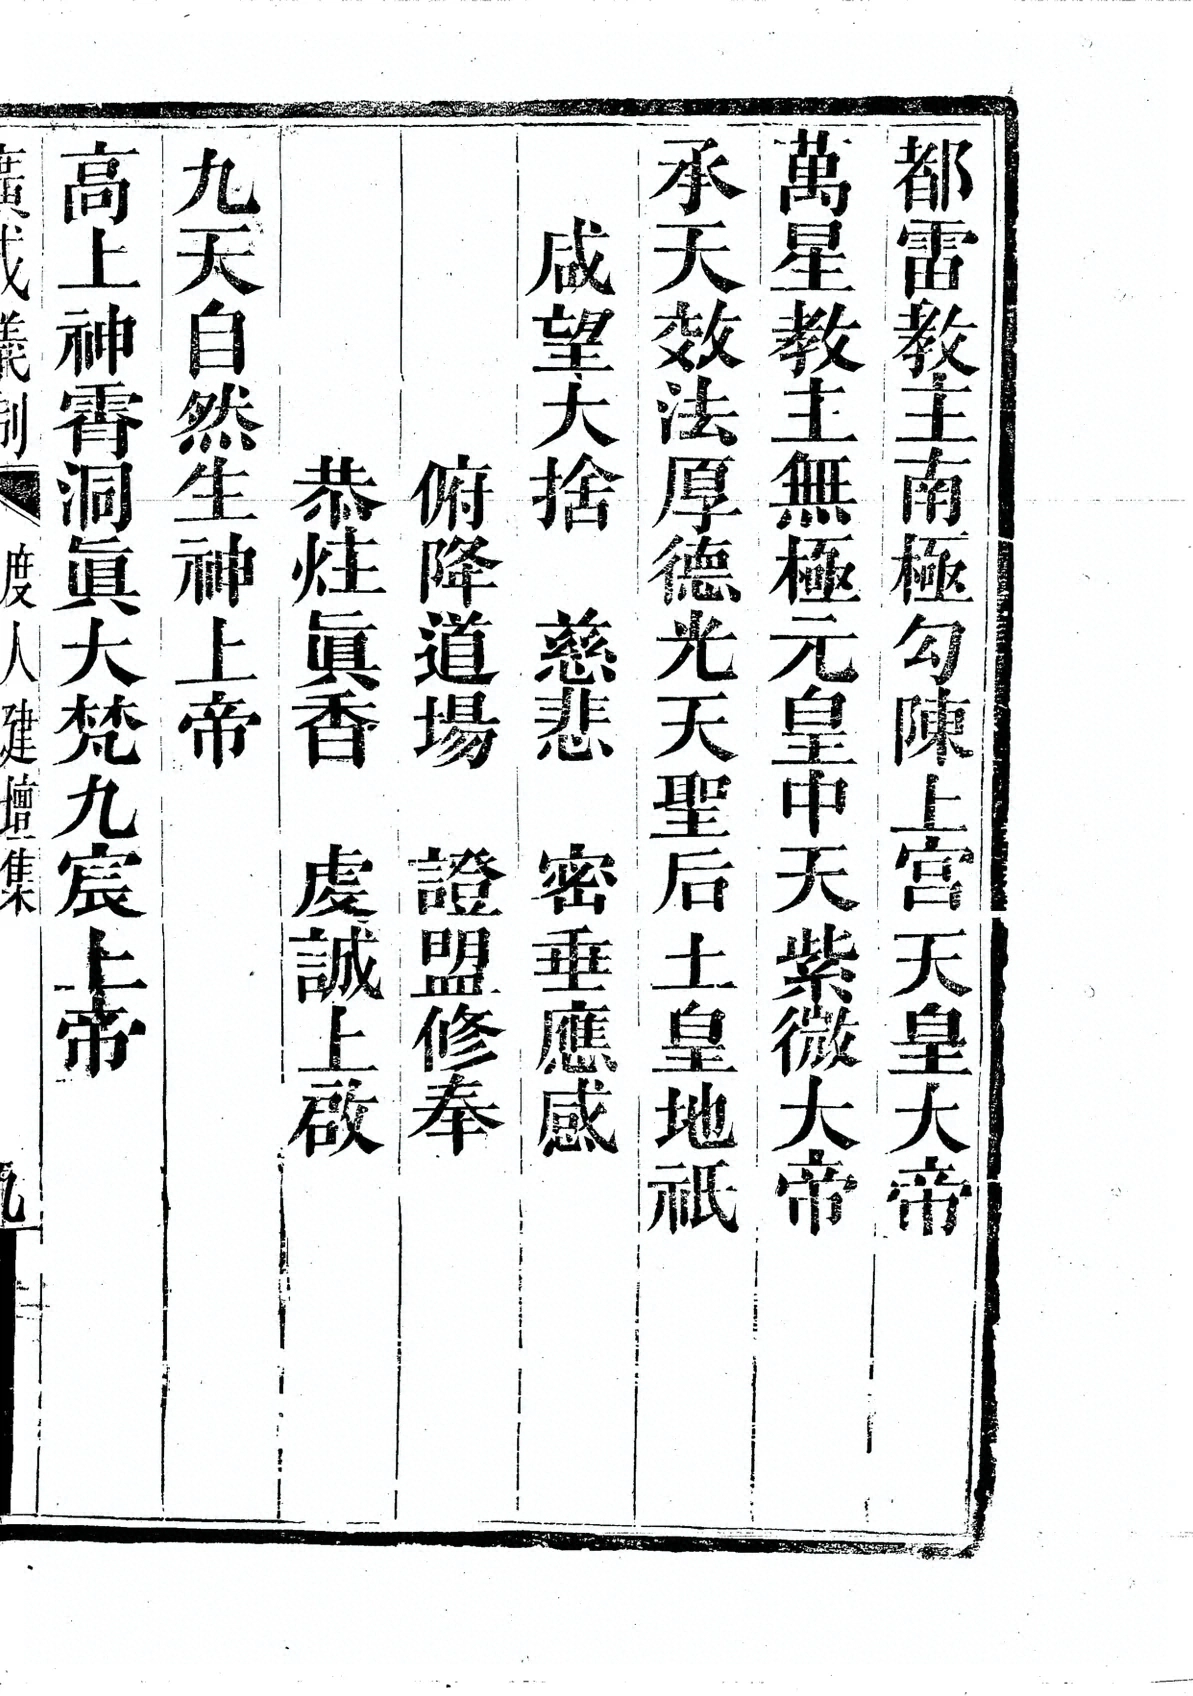 都雷教主南極勾陳上宮天皇大帝
萬星教主無極元皇中天紫微大帝
承天效法厚德光天聖后土皇地祇
咸望大捨　慈悲　密垂應感
俯降道場　證盟修奉
恭炷眞香　虔誠上啟
九天自然生神上帝
高上神霄洞眞大梵九宸上帝
廣成儀制　度人建壇集　九